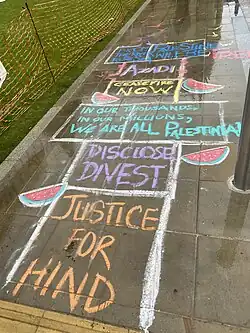 AZADI
CEASEFIRE
NOW
IN OUR THOUSANDS,
IN OUR MILLIONS,
WE ARE ALL PALESTINIAN
DISCLOSE
DIVEST
JUSTICE
FOR
HIND